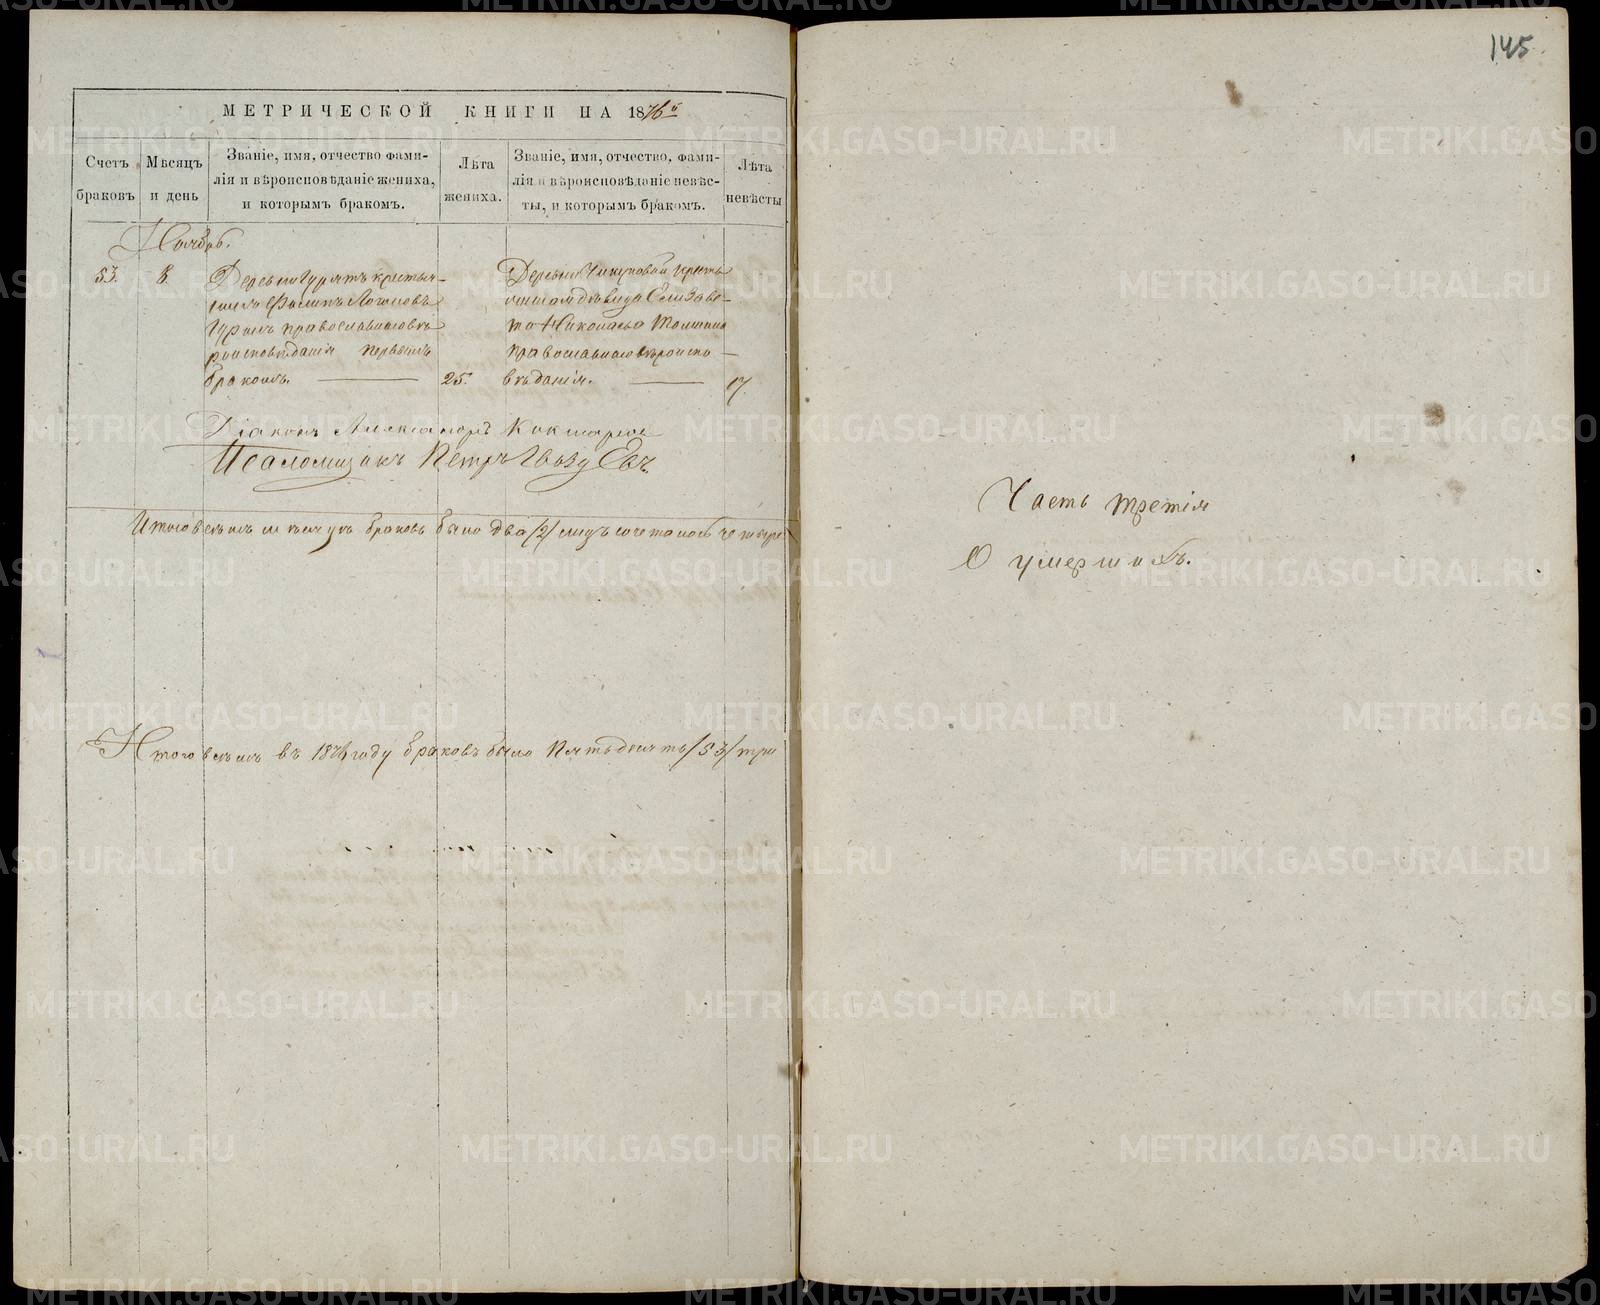 145
МЕТРИЧЕСКОЙ КНИГИ НА 1876й
Счетъ браковъ
Мѣсяцъ и день
Званіе, имя, отчество фами-
лія и вѣроисповѣданіе жениха,
и которымъ бракомъ.
Лѣта жениха.
Званіе, имя, отчество, фами-
лія и вѣроисповѣданіе невѣс-
ты, и которымъ бракомъ.
Лѣта невѣсты
Ноябрь.
53. 8.
Деревни крестья-
нинъ
православнаго вѣ-
роисповѣданія первымъ
бракомъ. 25.
Деревни кресть-
янская дѣвица Елизаве-
та Николаева
православнаго вѣроиспо-
вѣданія. 17.
Діаконъ Александръ
Псаломщикъ Петръ
Итого въ семъ мѣсяцѣ браковъ было два /2/ лицъ сочеталось четыре
Итого всѣхъ въ 1876 году браковъ было пятьдесятъ /53/ три
Часть третія
О умершихъ.
METRIKI.GASO-URAL.RU